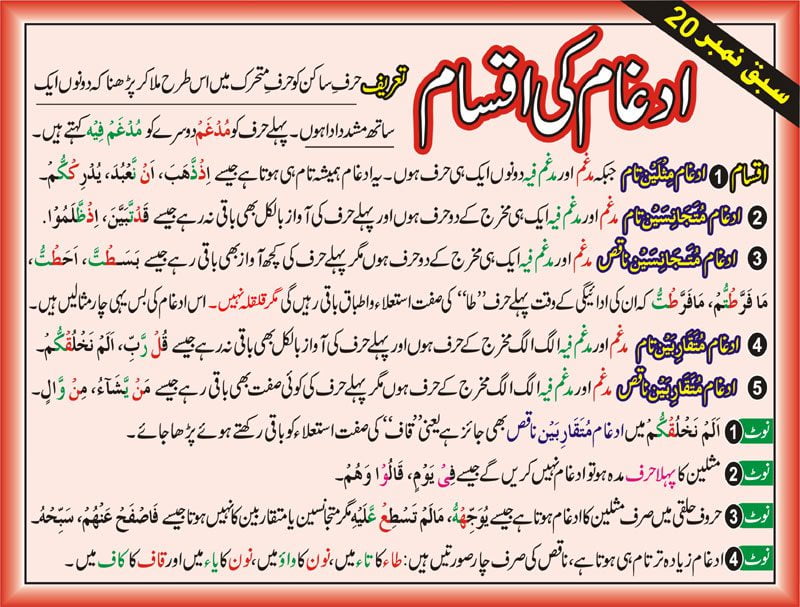 سبق نمبر 20
ادغام کی اقسام
تعریف حرفِ ساکن کو حرفِ متحرک میں اس طرح ملا کر پڑھنا کہ دونوں ایک
ساتھ مشدد ادا ہوں۔ پہلے حرف کو مُدْغَم دوسرے کو مُدْغَم فِیْہ کہتے ہیں۔
اقسام 1 ادغام مِثلَین تام جبکہ مدغم اور مدغم فیہ دونوں ایک ہی حرف ہوں۔ یہ ادغام ہمیشہ تام ہی ہوتا ہے جیسے اِذْذَّھَبَ، اَنْ نَّعْبُدَ، یُدْرِکْکُّمْ۔
2 ادغام مُتَجانِسَین تام مدغم اور مدغم فیہ ایک ہی مخرج کے دو حرف ہوں اور پہلے حرف کی آواز بالکل بھی باقی نہ رہے جیسے قَدْتَّبَیَّنَ، اِذْظَّلَمُوْا۔
3 ادغام مُتَجانِسَین ناقص مدغم اور مدغم فیہ ایک ہی مخرج کے دو حرف ہوں مگر پہلے حرف کی کچھ آواز بھی باقی رہے جیسے بَسَطْتَّ، اَحَطْتُّ،
مَا فَرَّطْتُّمْ، مَافَرَّطْتُّ کہ ان کی ادائیگی کے وقت پہلے حرف “طا” کی صفت استعلاء و اطباق باقی رہیں گی مگر قلقلہ نہیں۔ اس ادغام کی بس یہی چار مثالیں ہیں۔
4 ادغام مُتَقَارِبَین تام مدغم اور مدغم فیہ الگ الگ مخرج کے حرف ہوں اور پہلے حرف کی آواز بالکل بھی باقی نہ رہے جیسے قُلْ رَّبِّ، اَلَمْ نَخْلُقْکُّمْ۔
5 ادغام مُتَقَارِبَین ناقص مدغم اور مدغم فیہ الگ الگ مخرج کے حرف ہوں مگر پہلے حرف کی کوئی صفت بھی باقی رہے جیسے مَنْ یَّشَآءُ، مِنْ وَّالٍ۔
نوٹ 1 اَلَمْ نَخْلُقْکُّمْ میں ادغام مُتَقَارِبَین ناقص بھی جائز ہے یعنی “قاف” کی صفت استعلاء کو باقی رکھتے ہوئے پڑھا جائے۔
نوٹ 2 مثلین کا پہلا حرف مدہ ہو تو ادغام نہیں کریں گے جیسے فِیْ یَوْمٍ، قَالُوْا وَھُمْ۔
نوٹ 3 حروف حلقی میں صرف مثلین کا ادغام ہوتا ہے جیسے یُوَجِّھْہُّ، مَالَمْ تَسْطِعْ عَّلَیْہِ مگر متجانسین یا متقاربین کا نہیں ہوتا جیسے فَاصْفَحْ عَنْھُمْ، سَبِّحْہُ۔
نوٹ 4 ادغام زیادہ تر تام ہی ہوتا ہے، ناقص کی صرف چار صورتیں ہیں: طاء کا تاء میں، نون کا واؤ میں، نون کا یاء میں اور قاف کا کاف میں۔